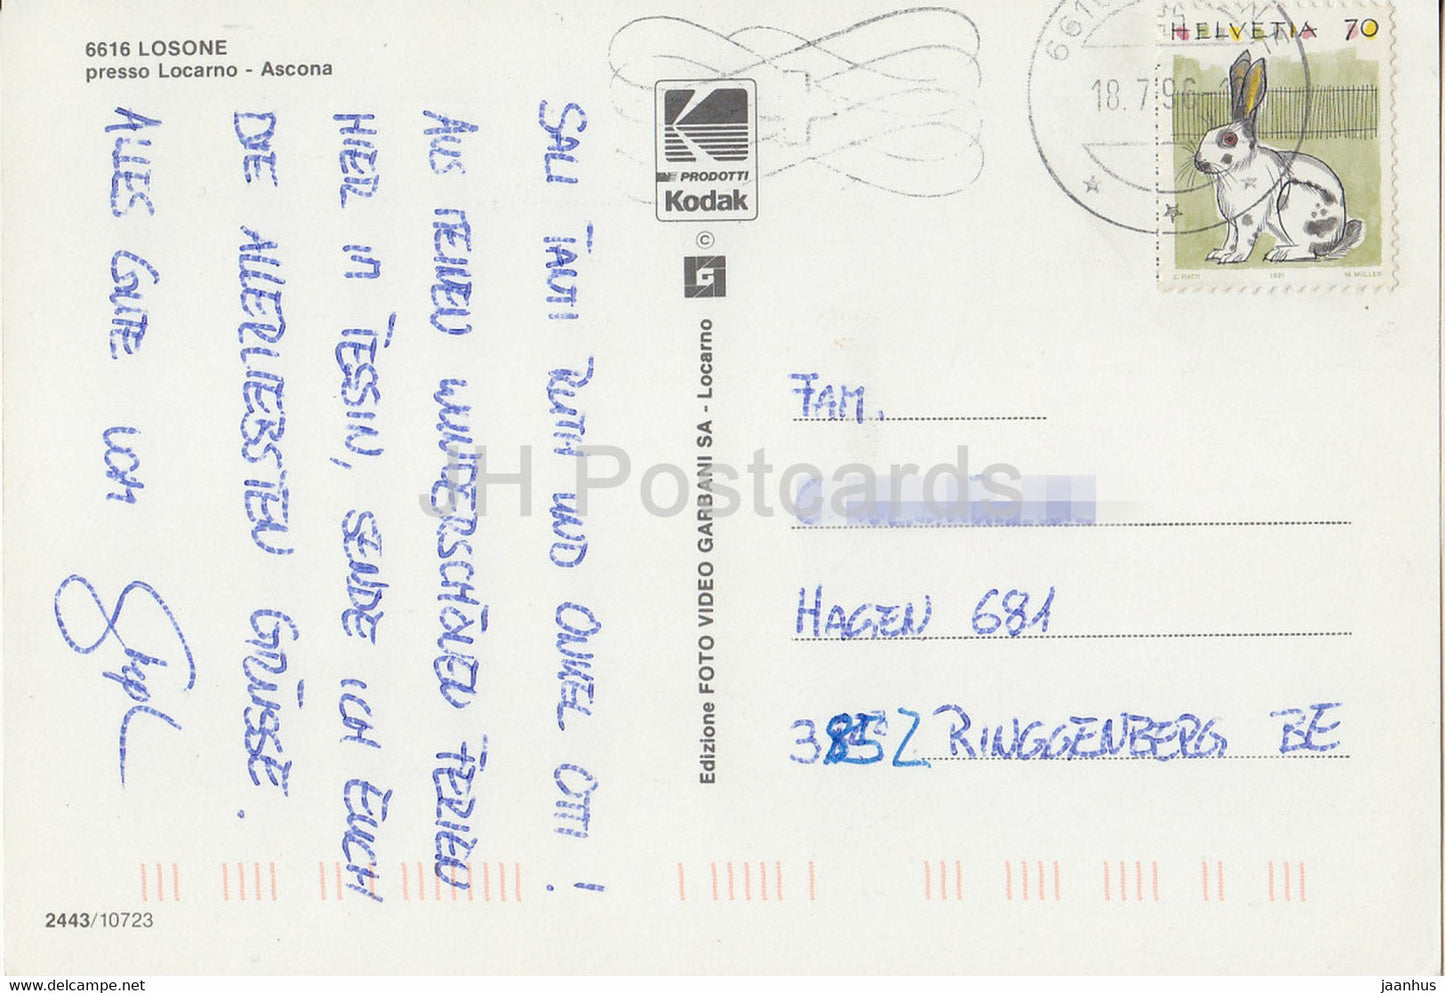 6616 LOSONE
presso Locarno - Ascona
SALI TANTI RUTH UND ONKEL OTTI!
AUS MEINEN WUNDERSCHÖNEN FERIEN
HIER IN TESSIN, SENDE ICH EUCH
DIE ALLERLIEBSTEN GRÜSSE.
ALLES GUTE VOM
2443/10723
PRODOTTI
Kodak
©
Edizione FOTO VIDEO GARBANI SA - Locarno
6616
18.7.96
HELVETIA 70
C. PIATTI 1991 M. MÜLLER
FAM.
HAGEN 681
3852 RINGGENBERG BE
JH Postcards
www.delcampe.net
jaanhus